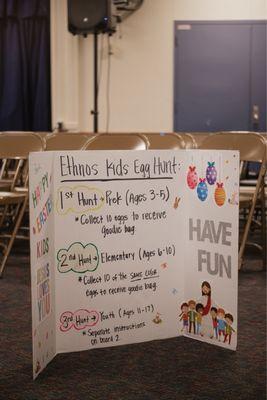 HAPPY
EASTER
KIDS
JESUS
LOVES
YOU
Ethnos Kids Egg Hunt:
1st Hunt → Prek (Ages 3-5)
* Collect 10 eggs to receive
goodie bag.
2nd Hunt → Elementary (Ages 6-10)
* Collect 10 of the SAME COLOR
eggs to receive goodie bag.
3RD Hunt → Youth (Ages 11-17)
* Separate instructions
on board 2.
HAVE
FUN